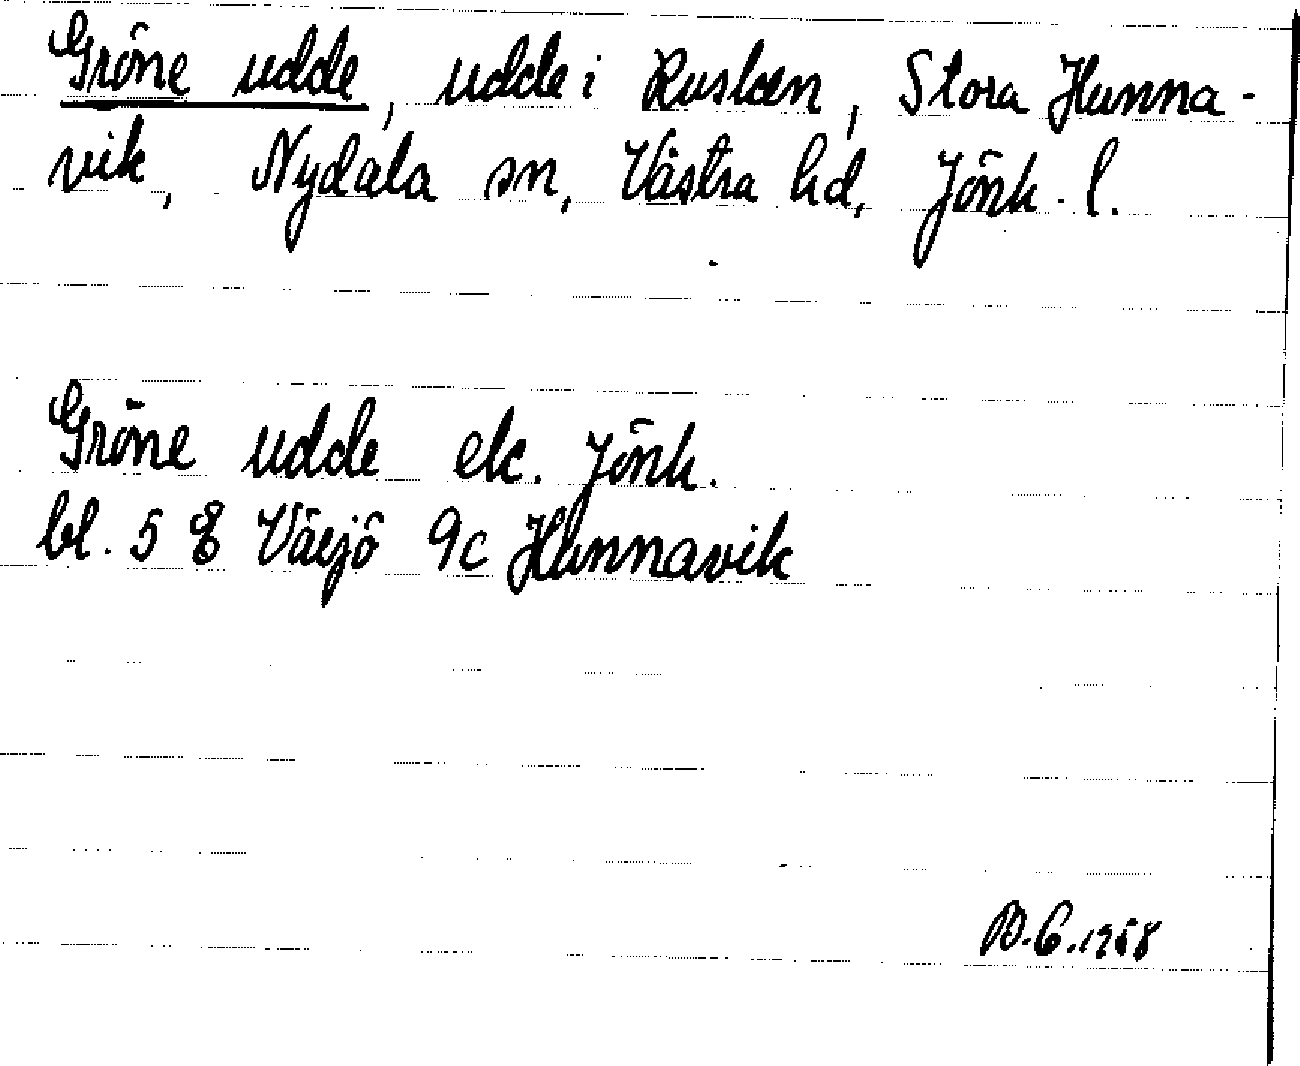 Gröne udde, udde i Rusken, Stora Hunna-
vik, Nydala sn, Västra hd, Jönk. l.
Gröne udde ek. Jönk.
bl. 5 E Växjö 9c Hunnavik